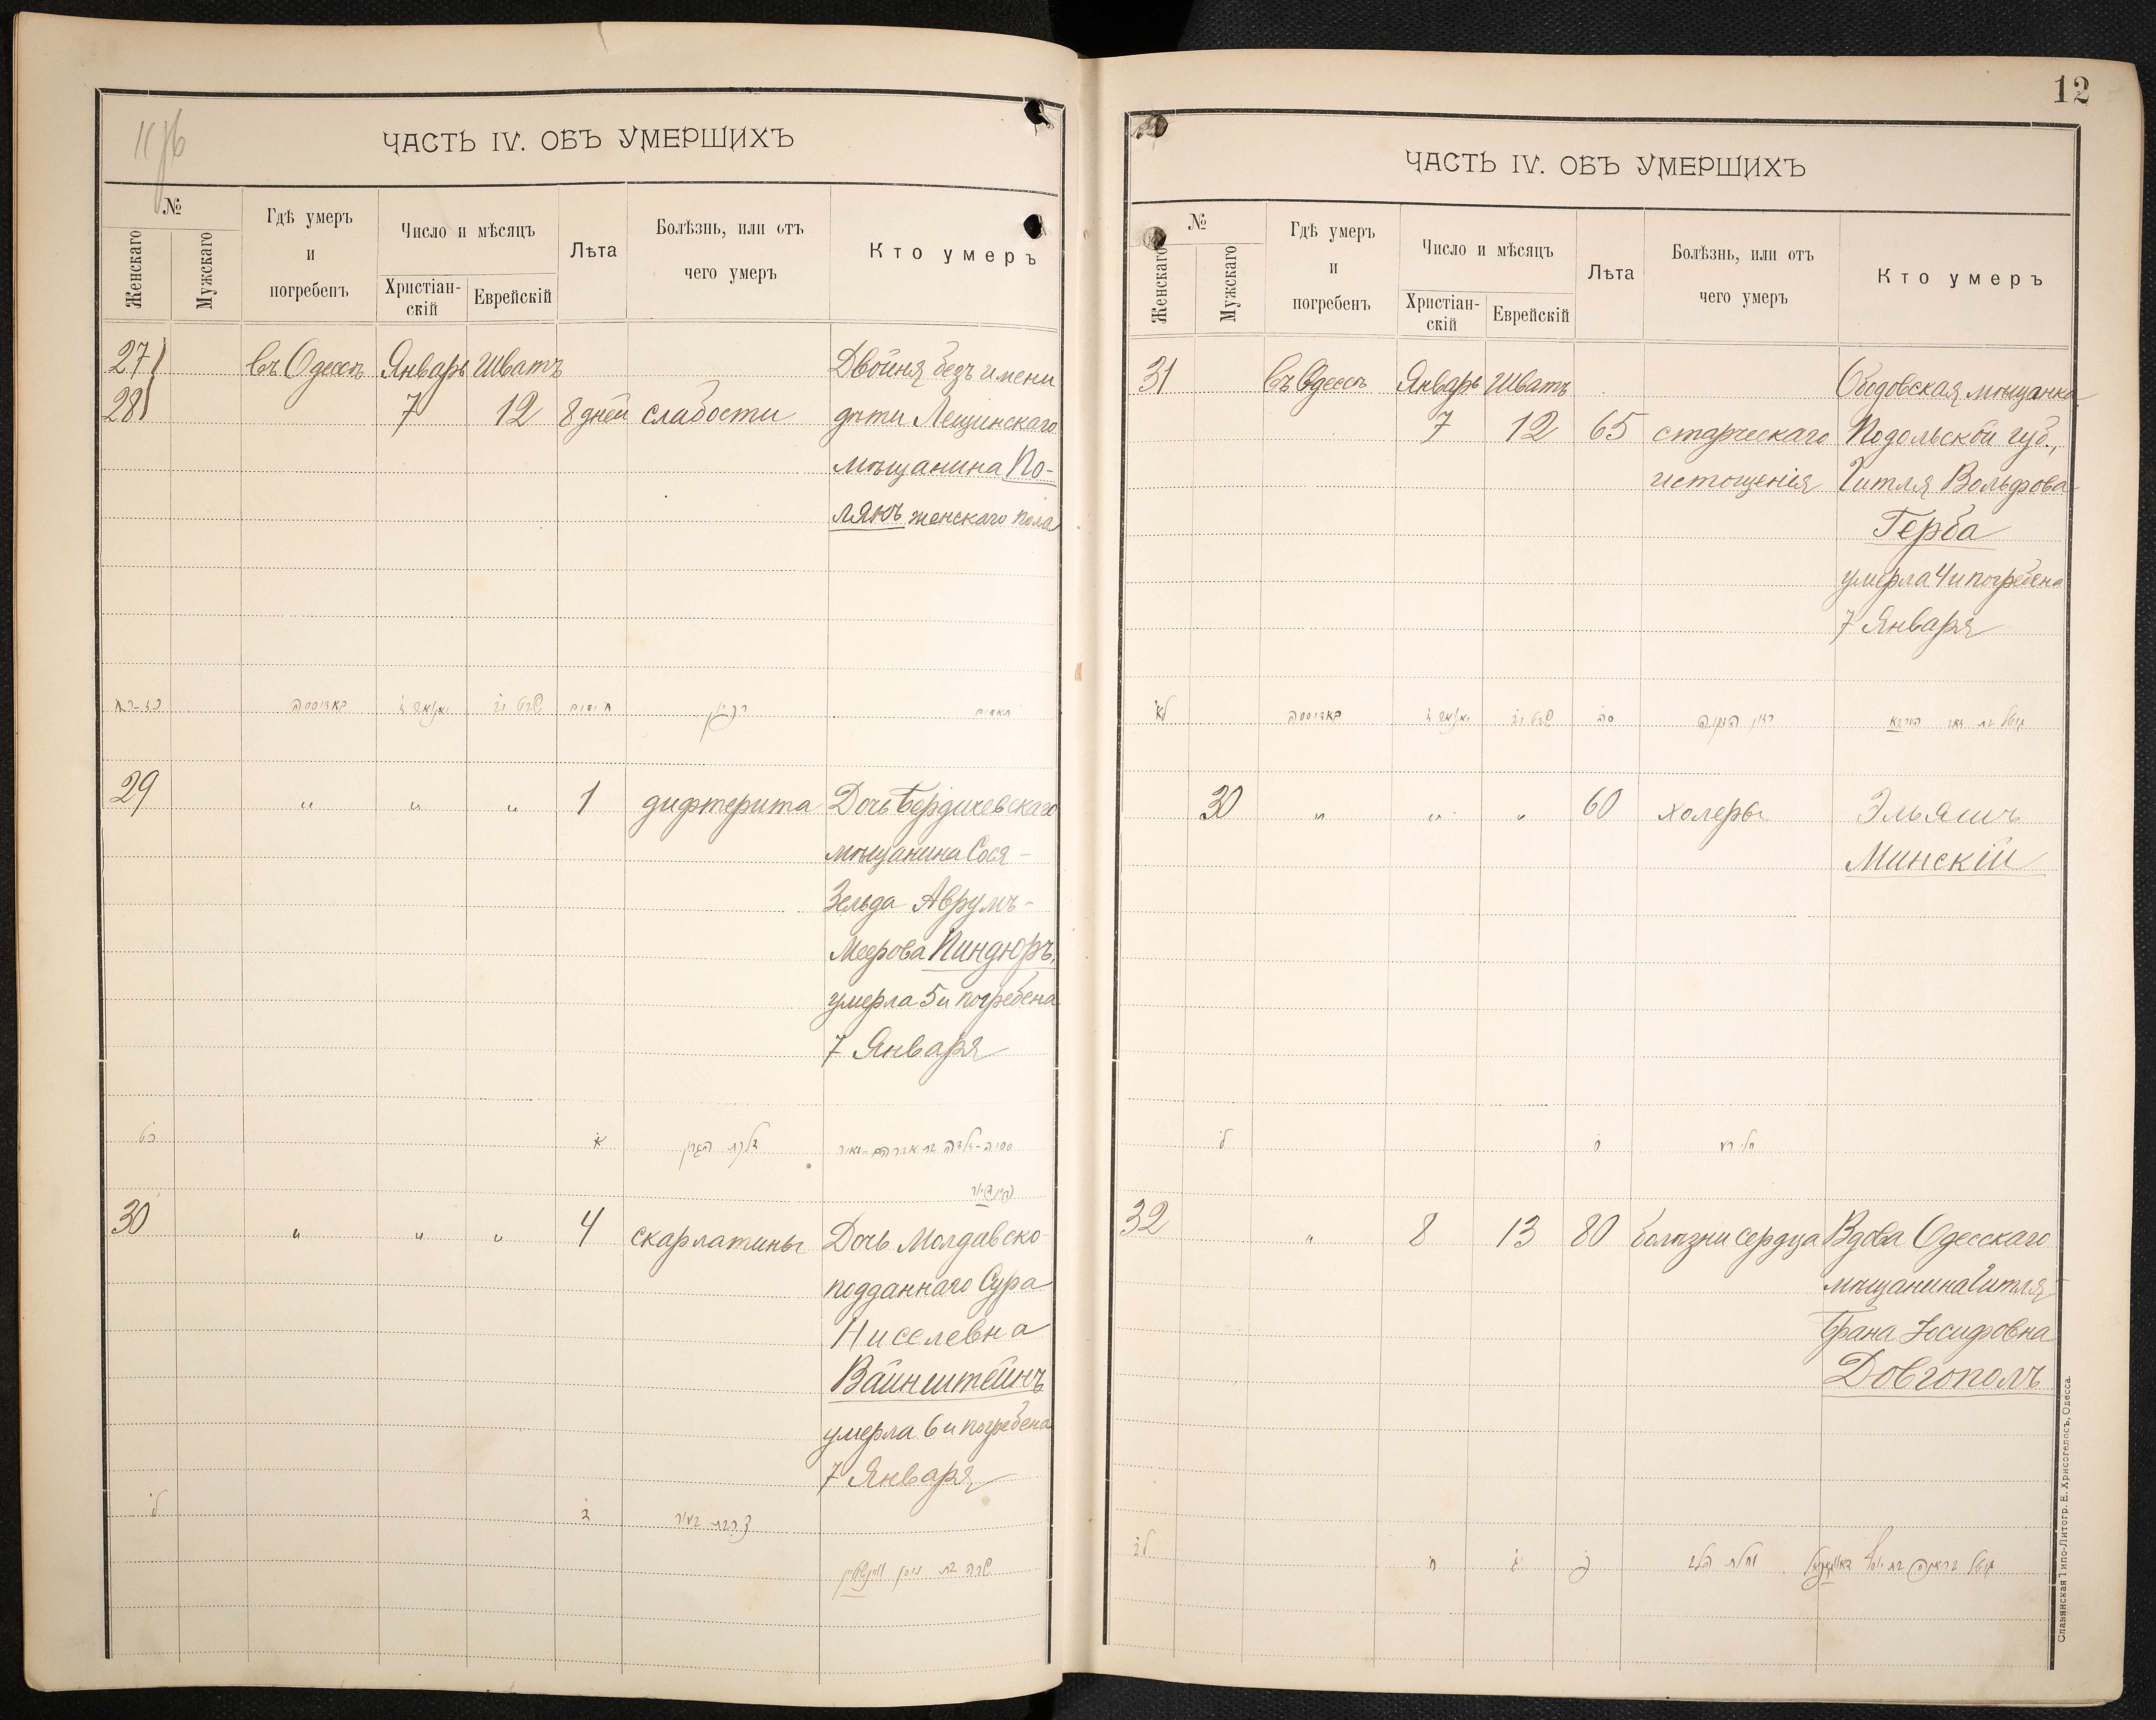 ЧАСТЬ IV. ОБЪ УМЕРШИХЪ
№
Женскаго
Мужскаго
Гдѣ умеръ
и
погребенъ
Число и мѣсяцъ
Христіан-
скій
Еврейскій
Лѣта
Болѣзнь, или отъ
чего умеръ
Кто умеръ
27 въ Одессѣ Январь Шватъ Двойня безъ имени
28 7 12 8 дней слабости дѣти Лещинскаго
мѣщанина По-
лякъ женскаго пола
29 " " " 1 дифтерита Дочь Бердичевскаго
мѣщанина Сося-
Зельда Аврумъ-
Меерова Пиндюръ,
умерла 5 и погребена
7 Января
כט א
30 " " " 4 скарлатины Дочь Молдавско-
подданнаго Сура
Ниселевна
Вайнштейнъ
умерла 6 и погребена
7 Января
ל ד
שרה בת ניסן וויינשטיין
12
ЧАСТЬ IV. ОБЪ УМЕРШИХЪ
№
Женскаго
Мужскаго
Гдѣ умеръ
и
погребенъ
Число и мѣсяцъ
Христіан-
скій
Еврейскій
Лѣта
Болѣзнь, или отъ
чего умеръ
Кто умеръ
31 въ Одессѣ Январь Шватъ Ободовская мѣщанка
7 12 65 старческаго Подольской губ.,
истощенія Гитля Вольфова
Герба
умерла 4 и погребена
7 Января
לא
30 " " " 60 холеры Эльяшъ
Минскій
ל ס חלירע
32 " 8 13 80 болѣзни сердца Вдова Одесскаго
мѣщанина Гитля-
Брана Іосифовна
Довгополъ
לב ח יג פ מחלת הלב
Славянская Типо-Литогр. Е. Хрисогелосъ, Одесса.